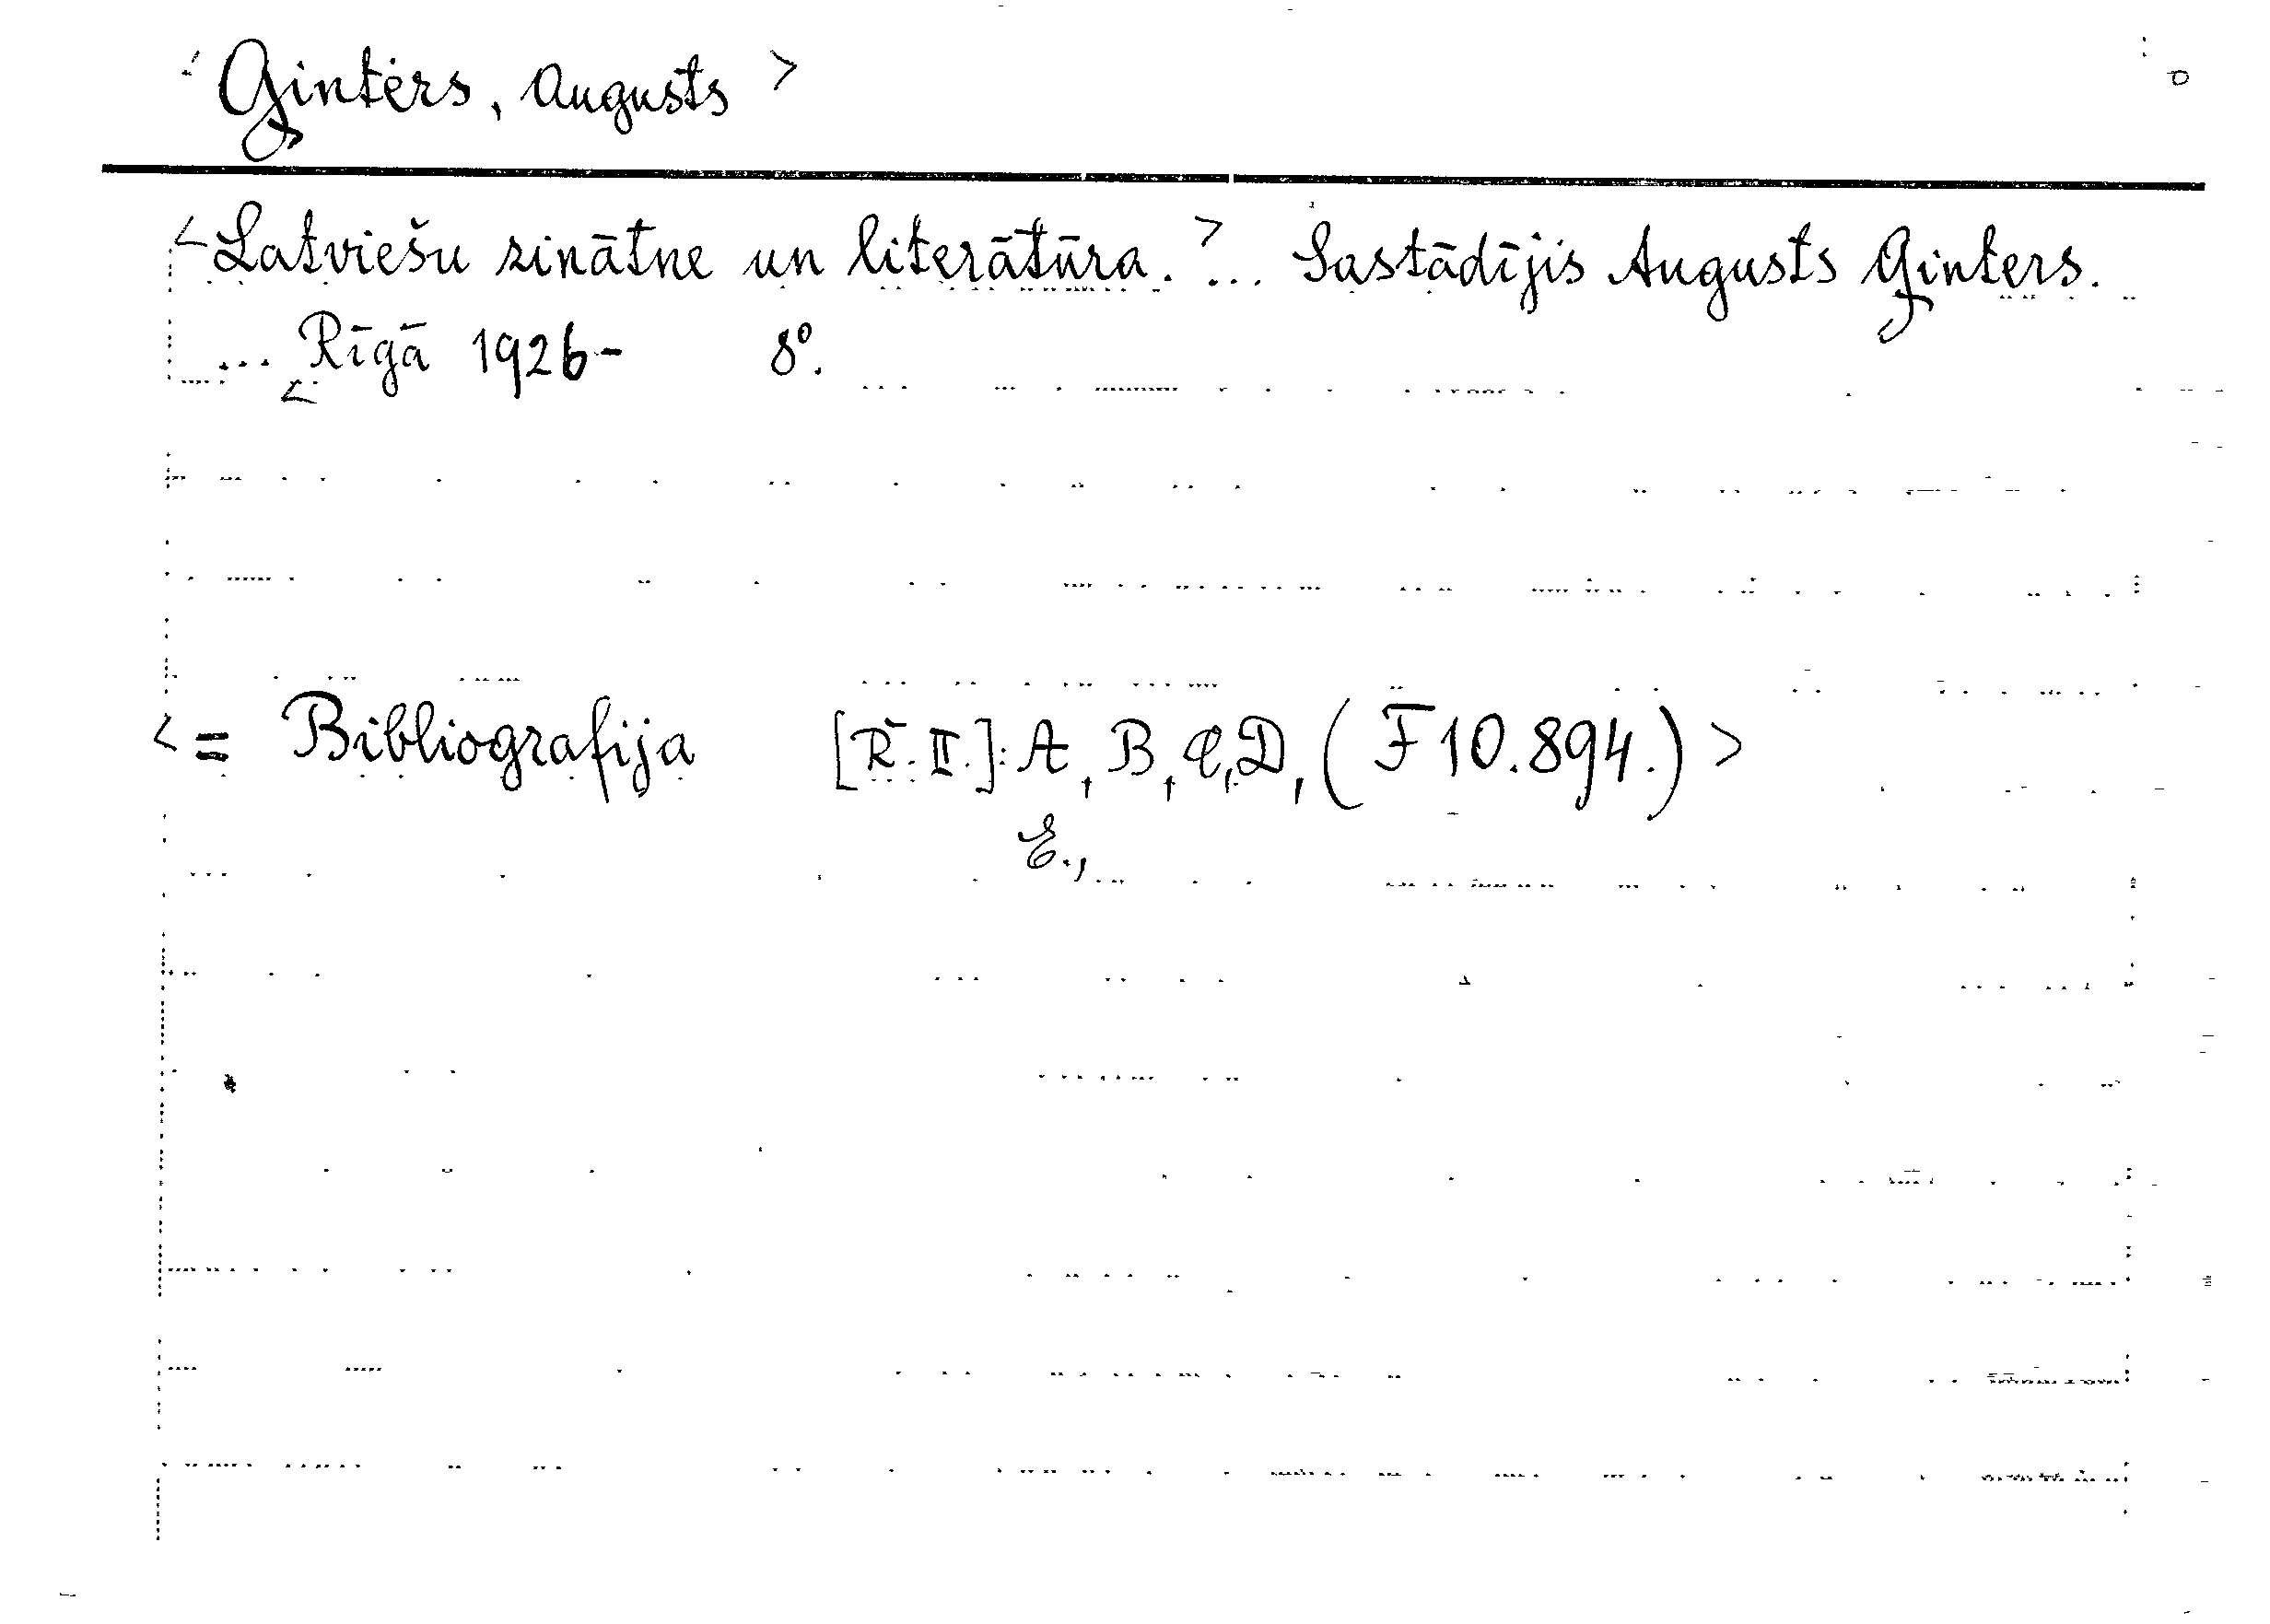 <Ģinters, Augusts>
<Latviešu zinātne un literātūra.> ... Sastādījis Augusts Ģinters.
... <Rīgā 1926- 8°.
<= Bibliografija [R. II.]: A, B, C, D, (F 10.894.)>
E.,